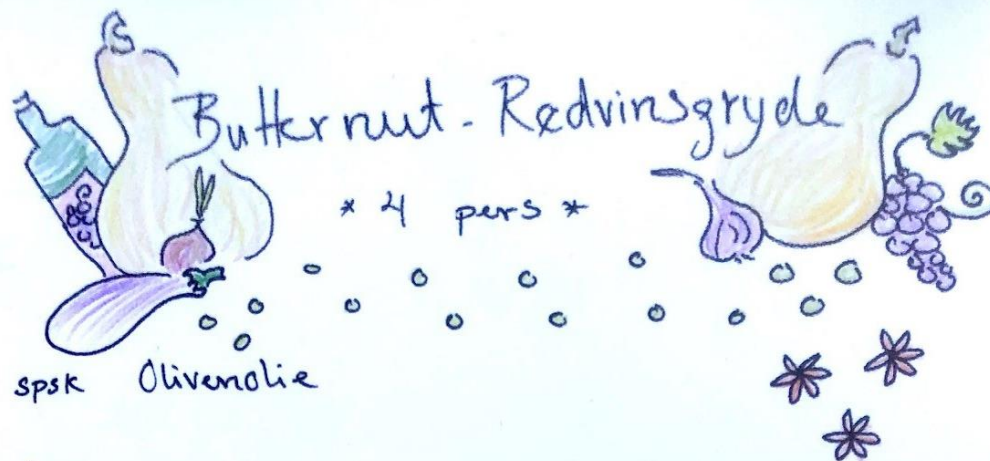 Butternut - Rødvinsgryde
* 4 pers *
spsk Olivenolie